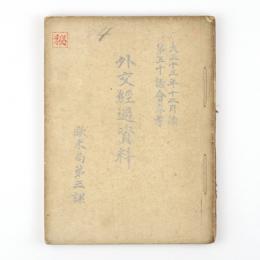 大正十三年十二月調
第五十議会参考
外交經過資料
歐米局第三課
秘